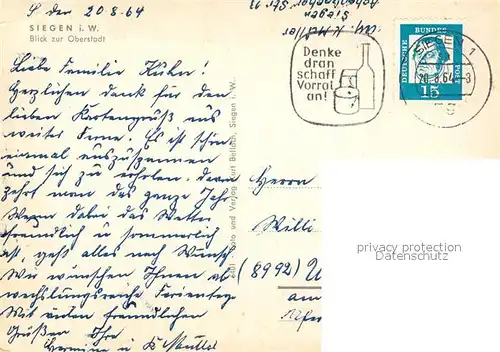 S den 20.8.64
SIEGEN i. W.
Blick zur Oberstadt
Liebe Familie Kühn!
Herzlichen Dank für den
lieben Kartengruß aus
weiter Ferne. Es ist schön
einmal auszuspannen
und sich zu erholen. Davon
zehrt man das ganze Jahr
Wenn dabei das Wetter
freundlich u sommerlich
ist, geht alles nach Wunsch
Wir wünschen Ihnen ab
wechslungsreiche Ferientage
Mit vielen freundlichen
Grüßen Ihre
Hermine u K Müller
Foto und Verlag Kurt Bellach, Siegen i. W.
K Müller
Siegen
Denke
dran
schaff
Vorrat
an!
DEUTSCHE BUNDESPOST
15
SIEGEN 1
20.8.64
Herrn
Willi
(8992)
am
privacy protection
Datenschutz